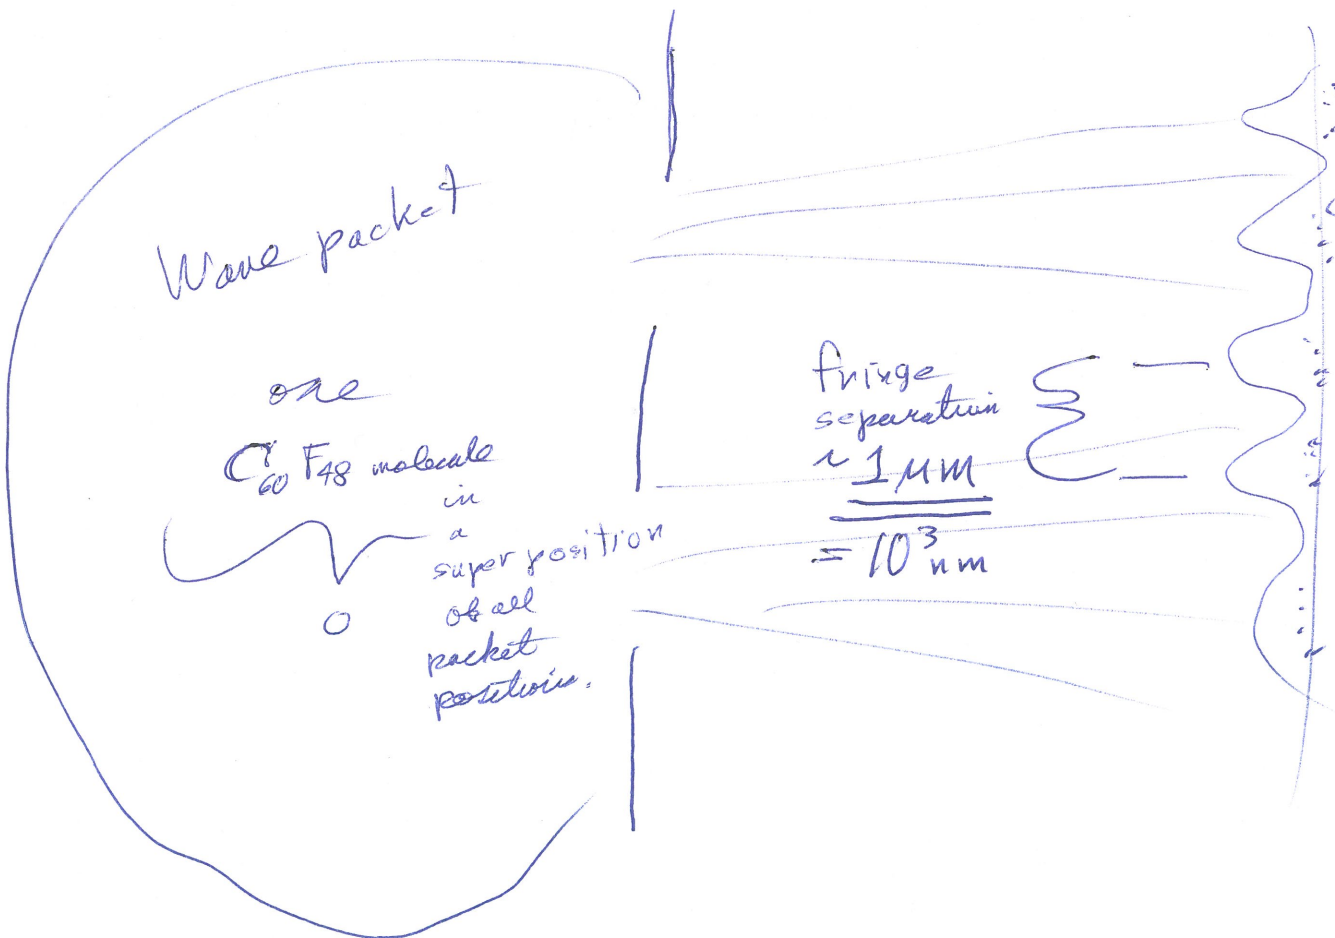 Wave packet
one
C60 F48 molecule
in
a
super position
of all
packet
positions.
fringe
separation
~ 1 μm
= 10³ nm